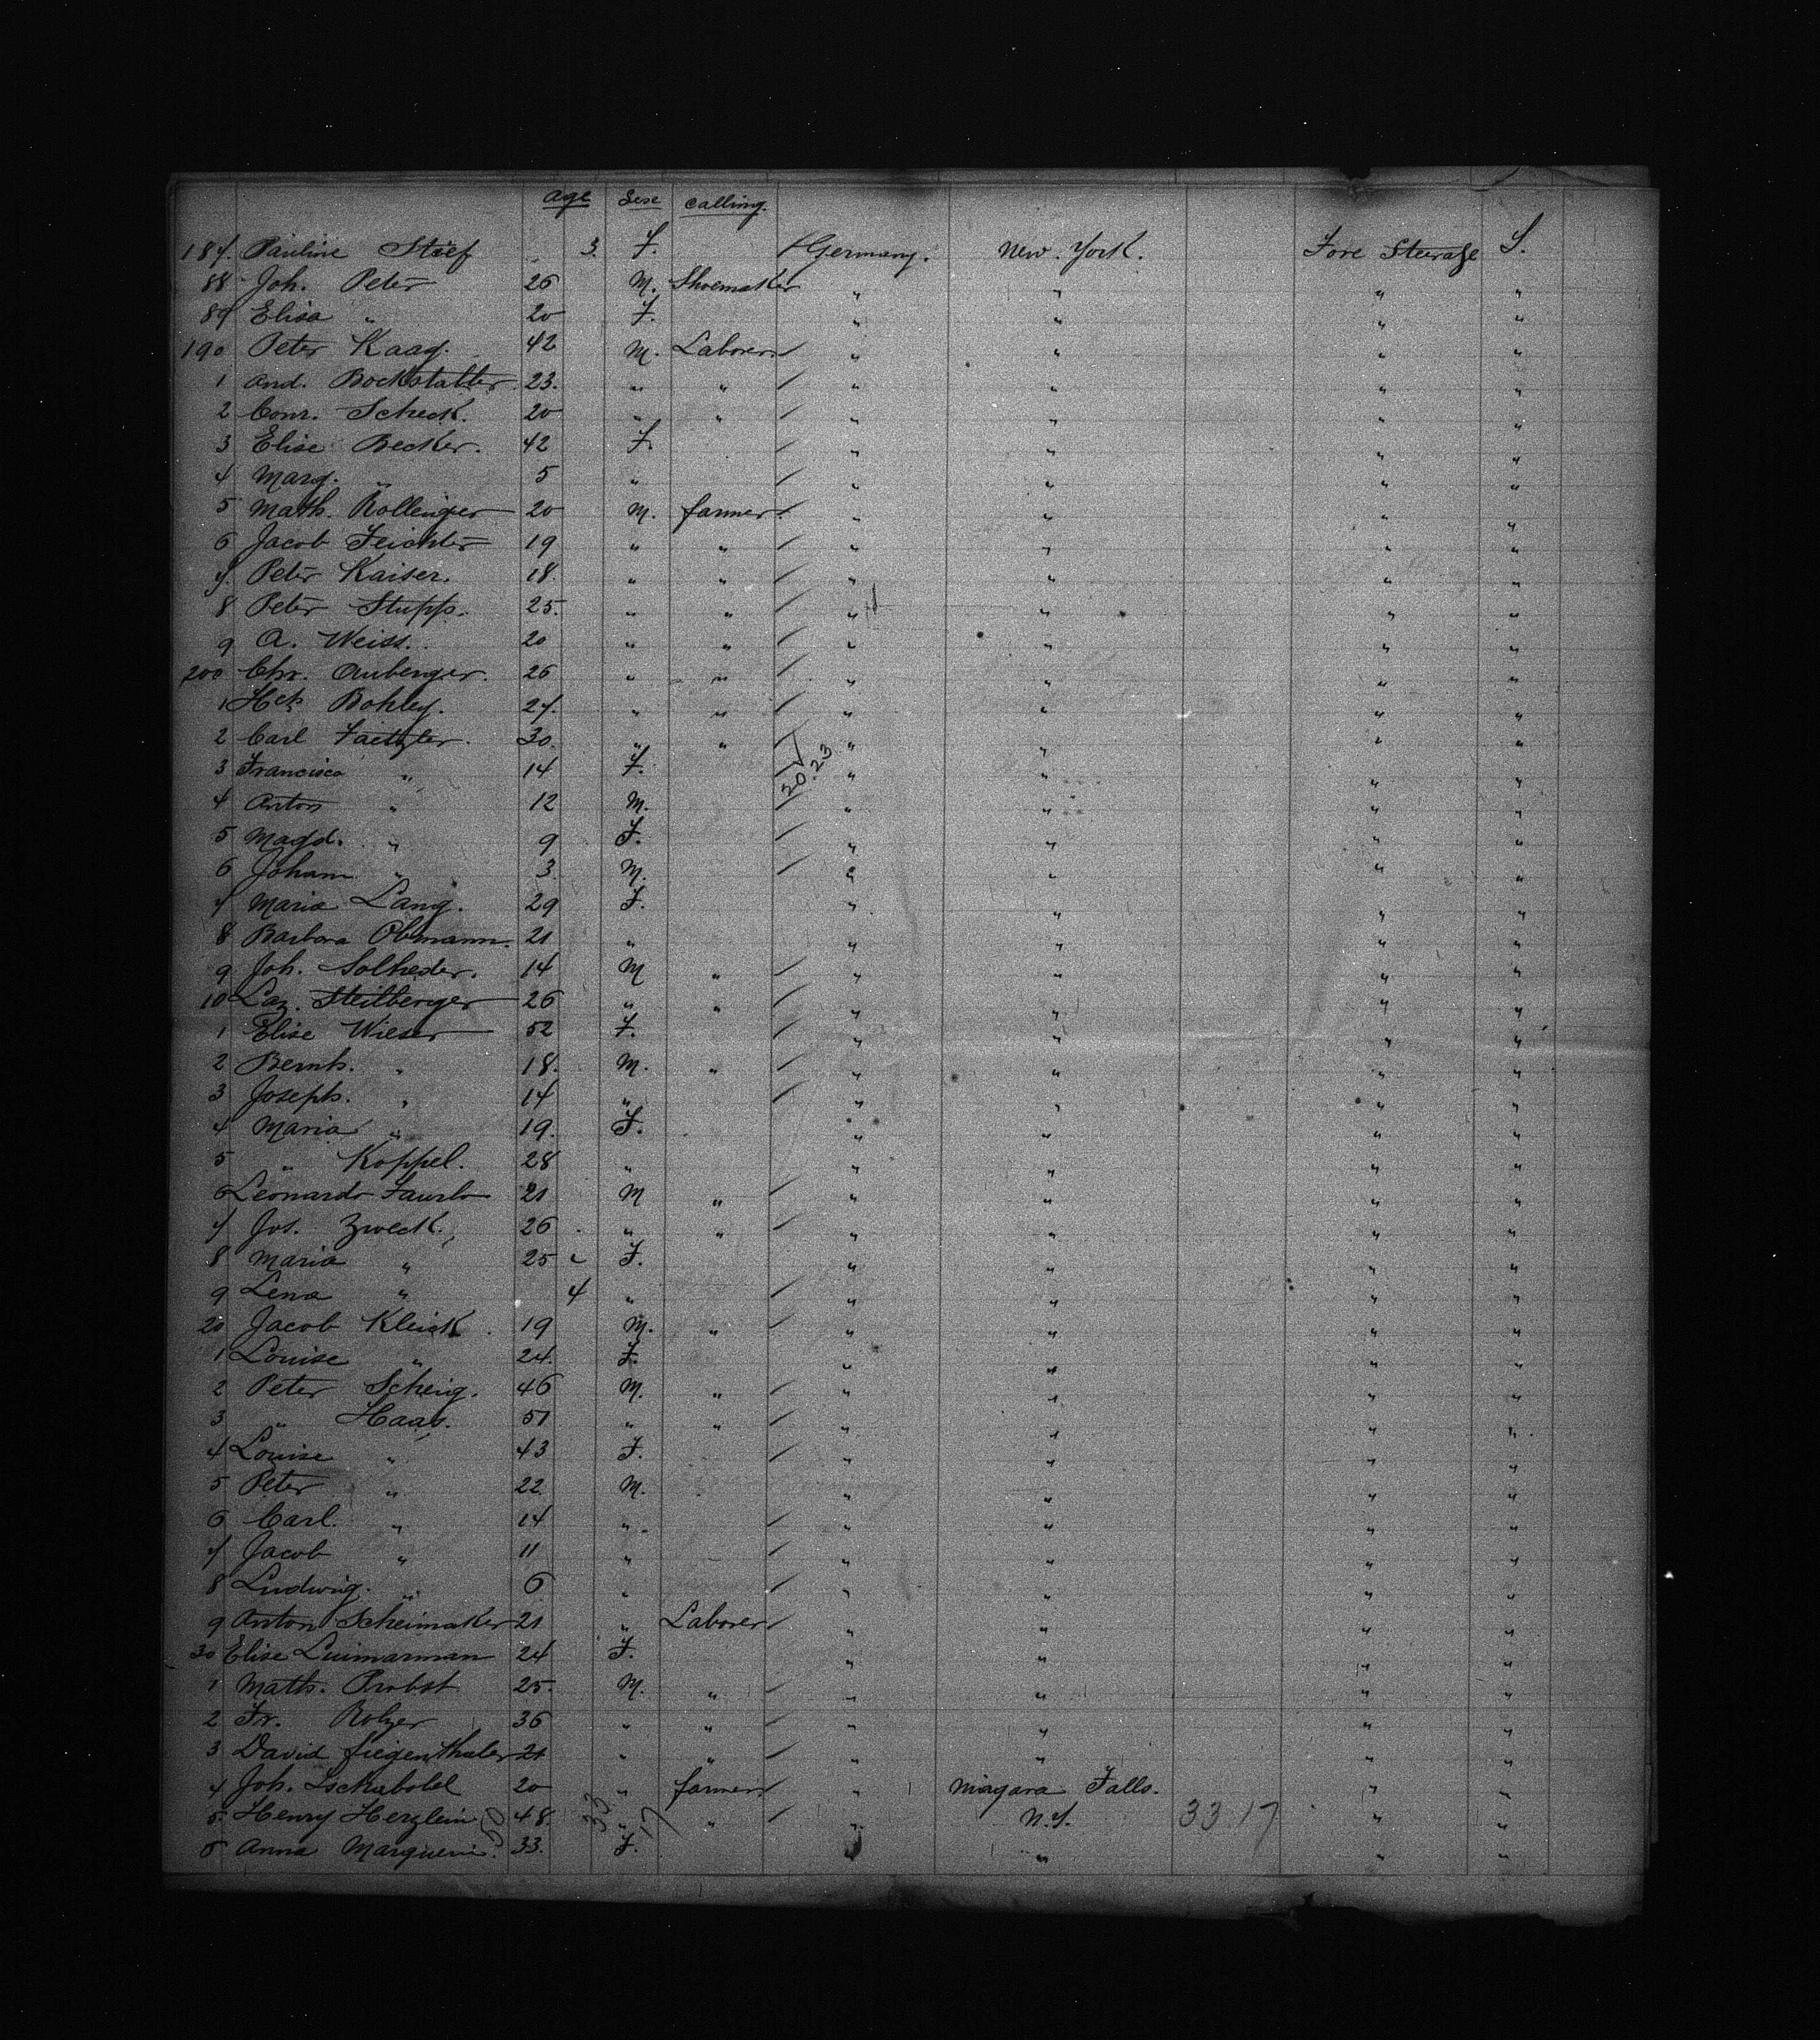 age Sex calling.
187. Pauline Stief 3. F. Germany. New. York. Fore Steerage S.
88 Joh. Peter 26 M. Shoemaker " " " "
89 Elisa " 20 F. " " " "
190 Peter Kaag. 42 M. Laborer " " " "
1 And. Bockstatter. 23. " " " " " "
2 Conr. Scheck. 20 " " " " " "
3 Elise Becker. 42 F. " " " "
4 Marg. " 5 " " " " "
5 Math. Rollinger 20 M. farmer. " " " "
6 Jacob Feichter 19 " " " " " "
7. Peter Kaiser. 18. " " " " " "
8 Peter Stupp. 25. " " " " " "
9 A. Weiss. 20 " " " " " "
200 Chr. Auberger. 26 " " " " " "
1 Hch. Bohley. 27. " " " " " "
2 Carl 30. " " " " " "
3 Francisca " 14 F. 20.23 " " " "
4 Anton " 12 M. " " " "
5 Magd. " 9 F. " " " "
6 Johann " 3 M. " " " "
7 Maria Lang. 29 F. " " " "
8 Barbara Obmann. 21 " " " " "
9 Joh. Solheder. 14 M " " " " "
10 Laz. Steilberger 26 " " " " " "
1 Elise Wieser 52 F. " " " "
2 Bernh. " 18. M. " " " " "
3 Joseph. " 14 " " " " "
4 Maria " 19. F. " " " "
5 " Koppel. 28 " " " " "
6 Leonardo 21 M " " " " "
7 Jos. Zweck. 26 " " " " " "
8 Maria " 25 F. " " " "
9 Lena " 4 " " " " "
20 Jacob Kleick. 19 M. " " " " "
1 Louise " 24. F. " " " "
2 Peter Scheig. 46 M. " " " " "
3 " Haas. 51 " " " " " "
4 Louise " 43 F. " " " "
5 Peter " 22 M. " " " "
6 Carl. " 14 " " " " "
7 Jacob " 11 " " " " "
8 Ludwig. " 6 " " " " "
9 Anton Scheimaker 21 " Laborer " " " "
30 Elise 24 F. " " " "
1 Math. Probst 25. M. " " " " "
2 Fr. 36 " " " " " "
3 David Siegenthaler 21 " " " " " "
4 Joh. 20 " farmer " Niagara Falls. " "
5. Henry Herzlein 50 48. 33 " 17 " " N.Y. 33 17 " "
6 Anna 33. F. " " "